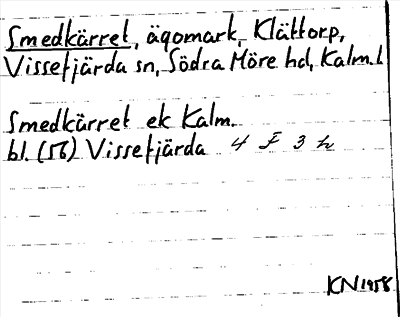 Smedkärret, ägomark, Klättorp,
Vissefjärda sn, Södra Möre hd, Kalm. l
Smedkärret ek Kalm.
bl. (56) Vissefjärda 4 F 3 h
KN 1958